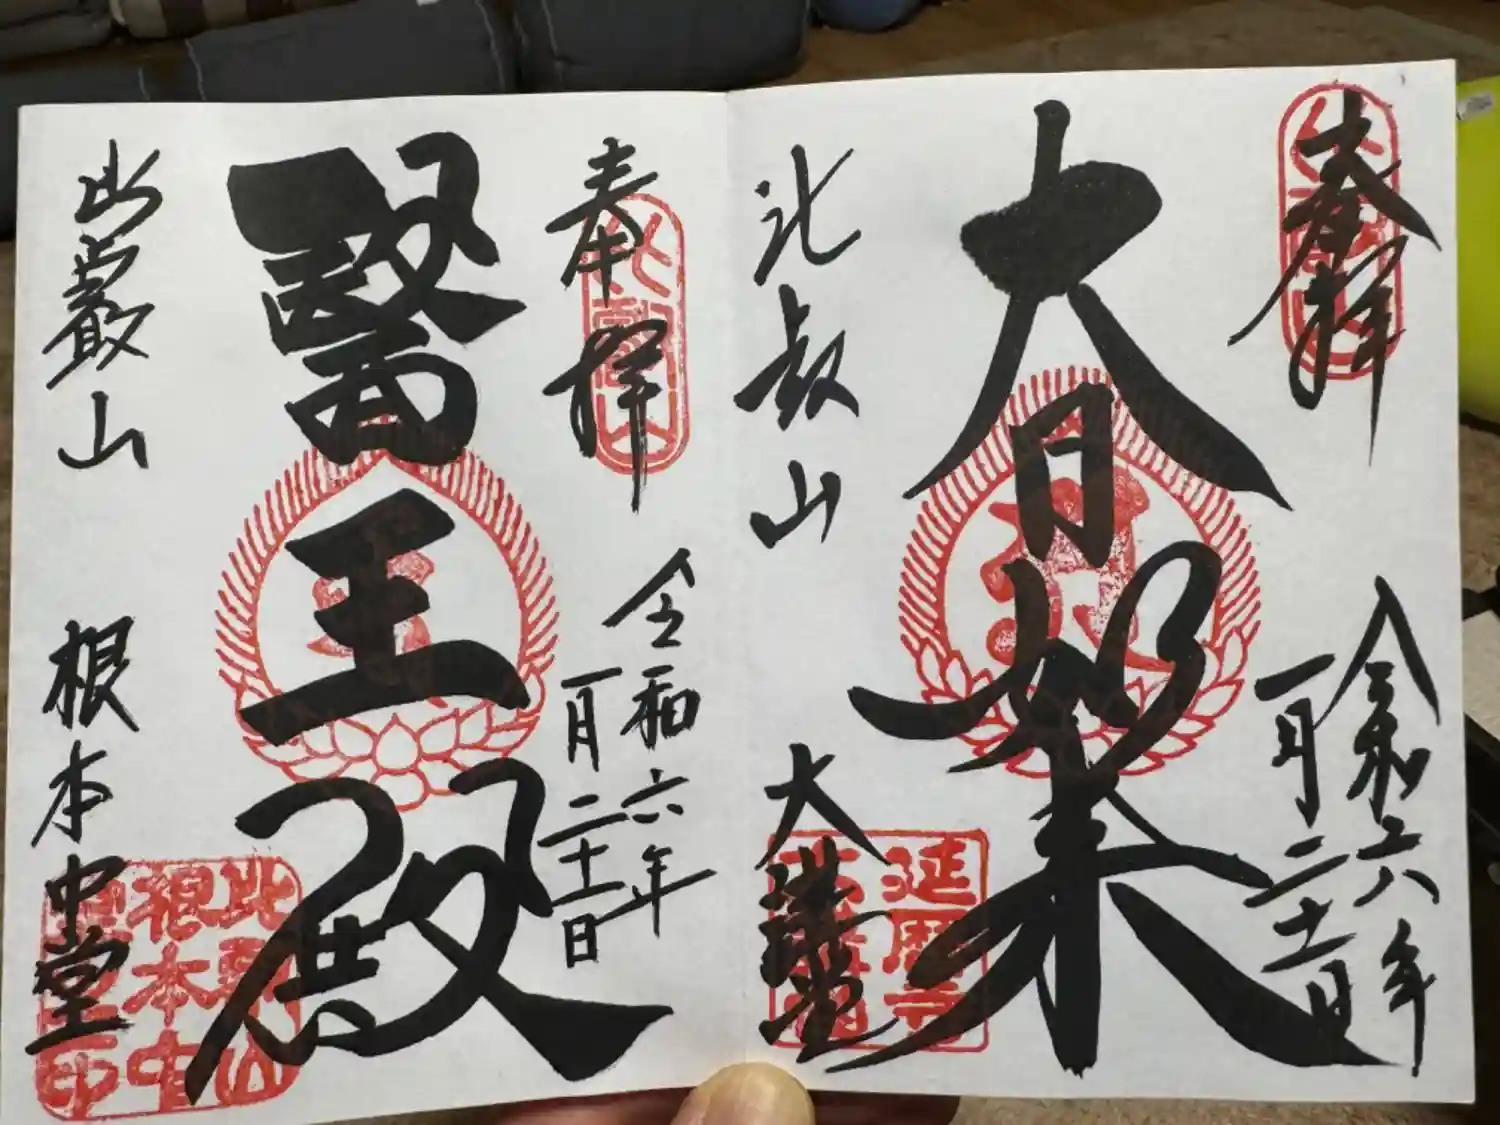 奉拝
令和六年
一月二十一日
大日如来
比叡山 大講堂
延暦寺
奉拝
令和六年
一月二十一日
醫王殿
比叡山 根本中堂
比叡山
根本中
堂之印